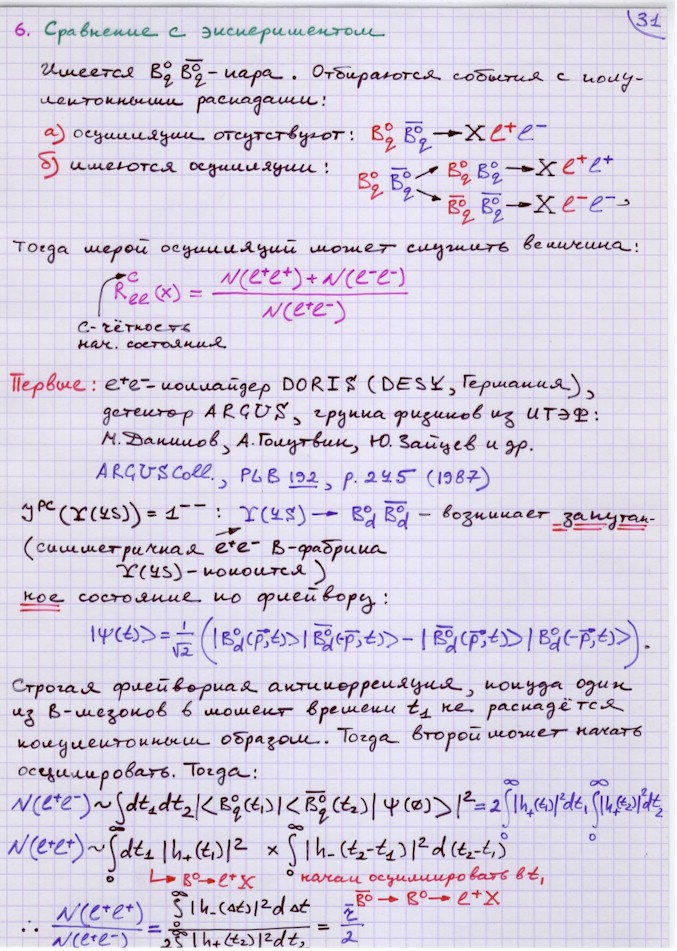 31
6. Сравнение с экспериментом
Имеется B⁰_q B̄⁰_q-пара. Отбираются события с полу-
лептонными распадами:
а) осцилляции отсутствуют: B⁰_q B̄⁰_q → X ℓ⁺ ℓ⁻
б) имеются осцилляции: B⁰_q B̄⁰_q ↗ B⁰_q B⁰_q → X ℓ⁺ ℓ⁺
↘ B̄⁰_q B̄⁰_q → X ℓ⁻ ℓ⁻,
Тогда мерой осцилляций может служить величина:
R^C_ℓℓ(x) = (N(ℓ⁺ℓ⁺) + N(ℓ⁻ℓ⁻)) / N(ℓ⁺ℓ⁻)
C-чётность
нач. состояния
Первые: e⁺e⁻-коллайдер DORIS (DESY, Германия),
детектор ARGUS, группа физиков из ИТЭФ:
М. Данилов, А. Голутвин, Ю. Зайцев и др.
ARGUS Coll., PLB 192, p. 245 (1987)
J^PC(Υ(4S)) = 1⁻⁻ : Υ(4S) → B⁰_d B̄⁰_d – возникает запутан-
(симметричная e⁺e⁻ B-фабрика
Υ(4S) – покоится)
ное состояние по флейвору:
|Ψ(t)> = 1/√2 (|B⁰_d(p⃗,t)> |B̄⁰_d(-p⃗,t)> – |B̄⁰_d(p⃗,t)> |B⁰_d(-p⃗,t)>).
Строгая флейворная антикорреляция, покуда один
из B-мезонов в момент времени t₁ не распадётся
полулептонным образом.. Тогда второй может начать
осцилировать. Тогда:
N(ℓ⁺ℓ⁻) ~ ∫dt₁dt₂ |<B⁰_q(t₁)| <B̄⁰_q(t₂)| Ψ(0)>|² = 2 ∫₀^∞ |h₊(t₁)|² dt₁ ∫₀^∞ |h₊(t₂)|² dt₂
N(ℓ⁺ℓ⁺) ~ ∫₀^∞ dt₁ |h₊(t₁)|² × ∫₀^∞ |h₋(t₂-t₁)|² d(t₂-t₁)
↳ B⁰→ℓ⁺X начал осциллировать в t₁
B̄⁰ → B⁰ → ℓ⁺X
∴ N(ℓ⁺ℓ⁺) / N(ℓ⁺ℓ⁻) = ∫₀^∞ |h₋(Δt)|² dΔt / 2∫|h₊(t₂)|² dt₂ = r̄ / 2